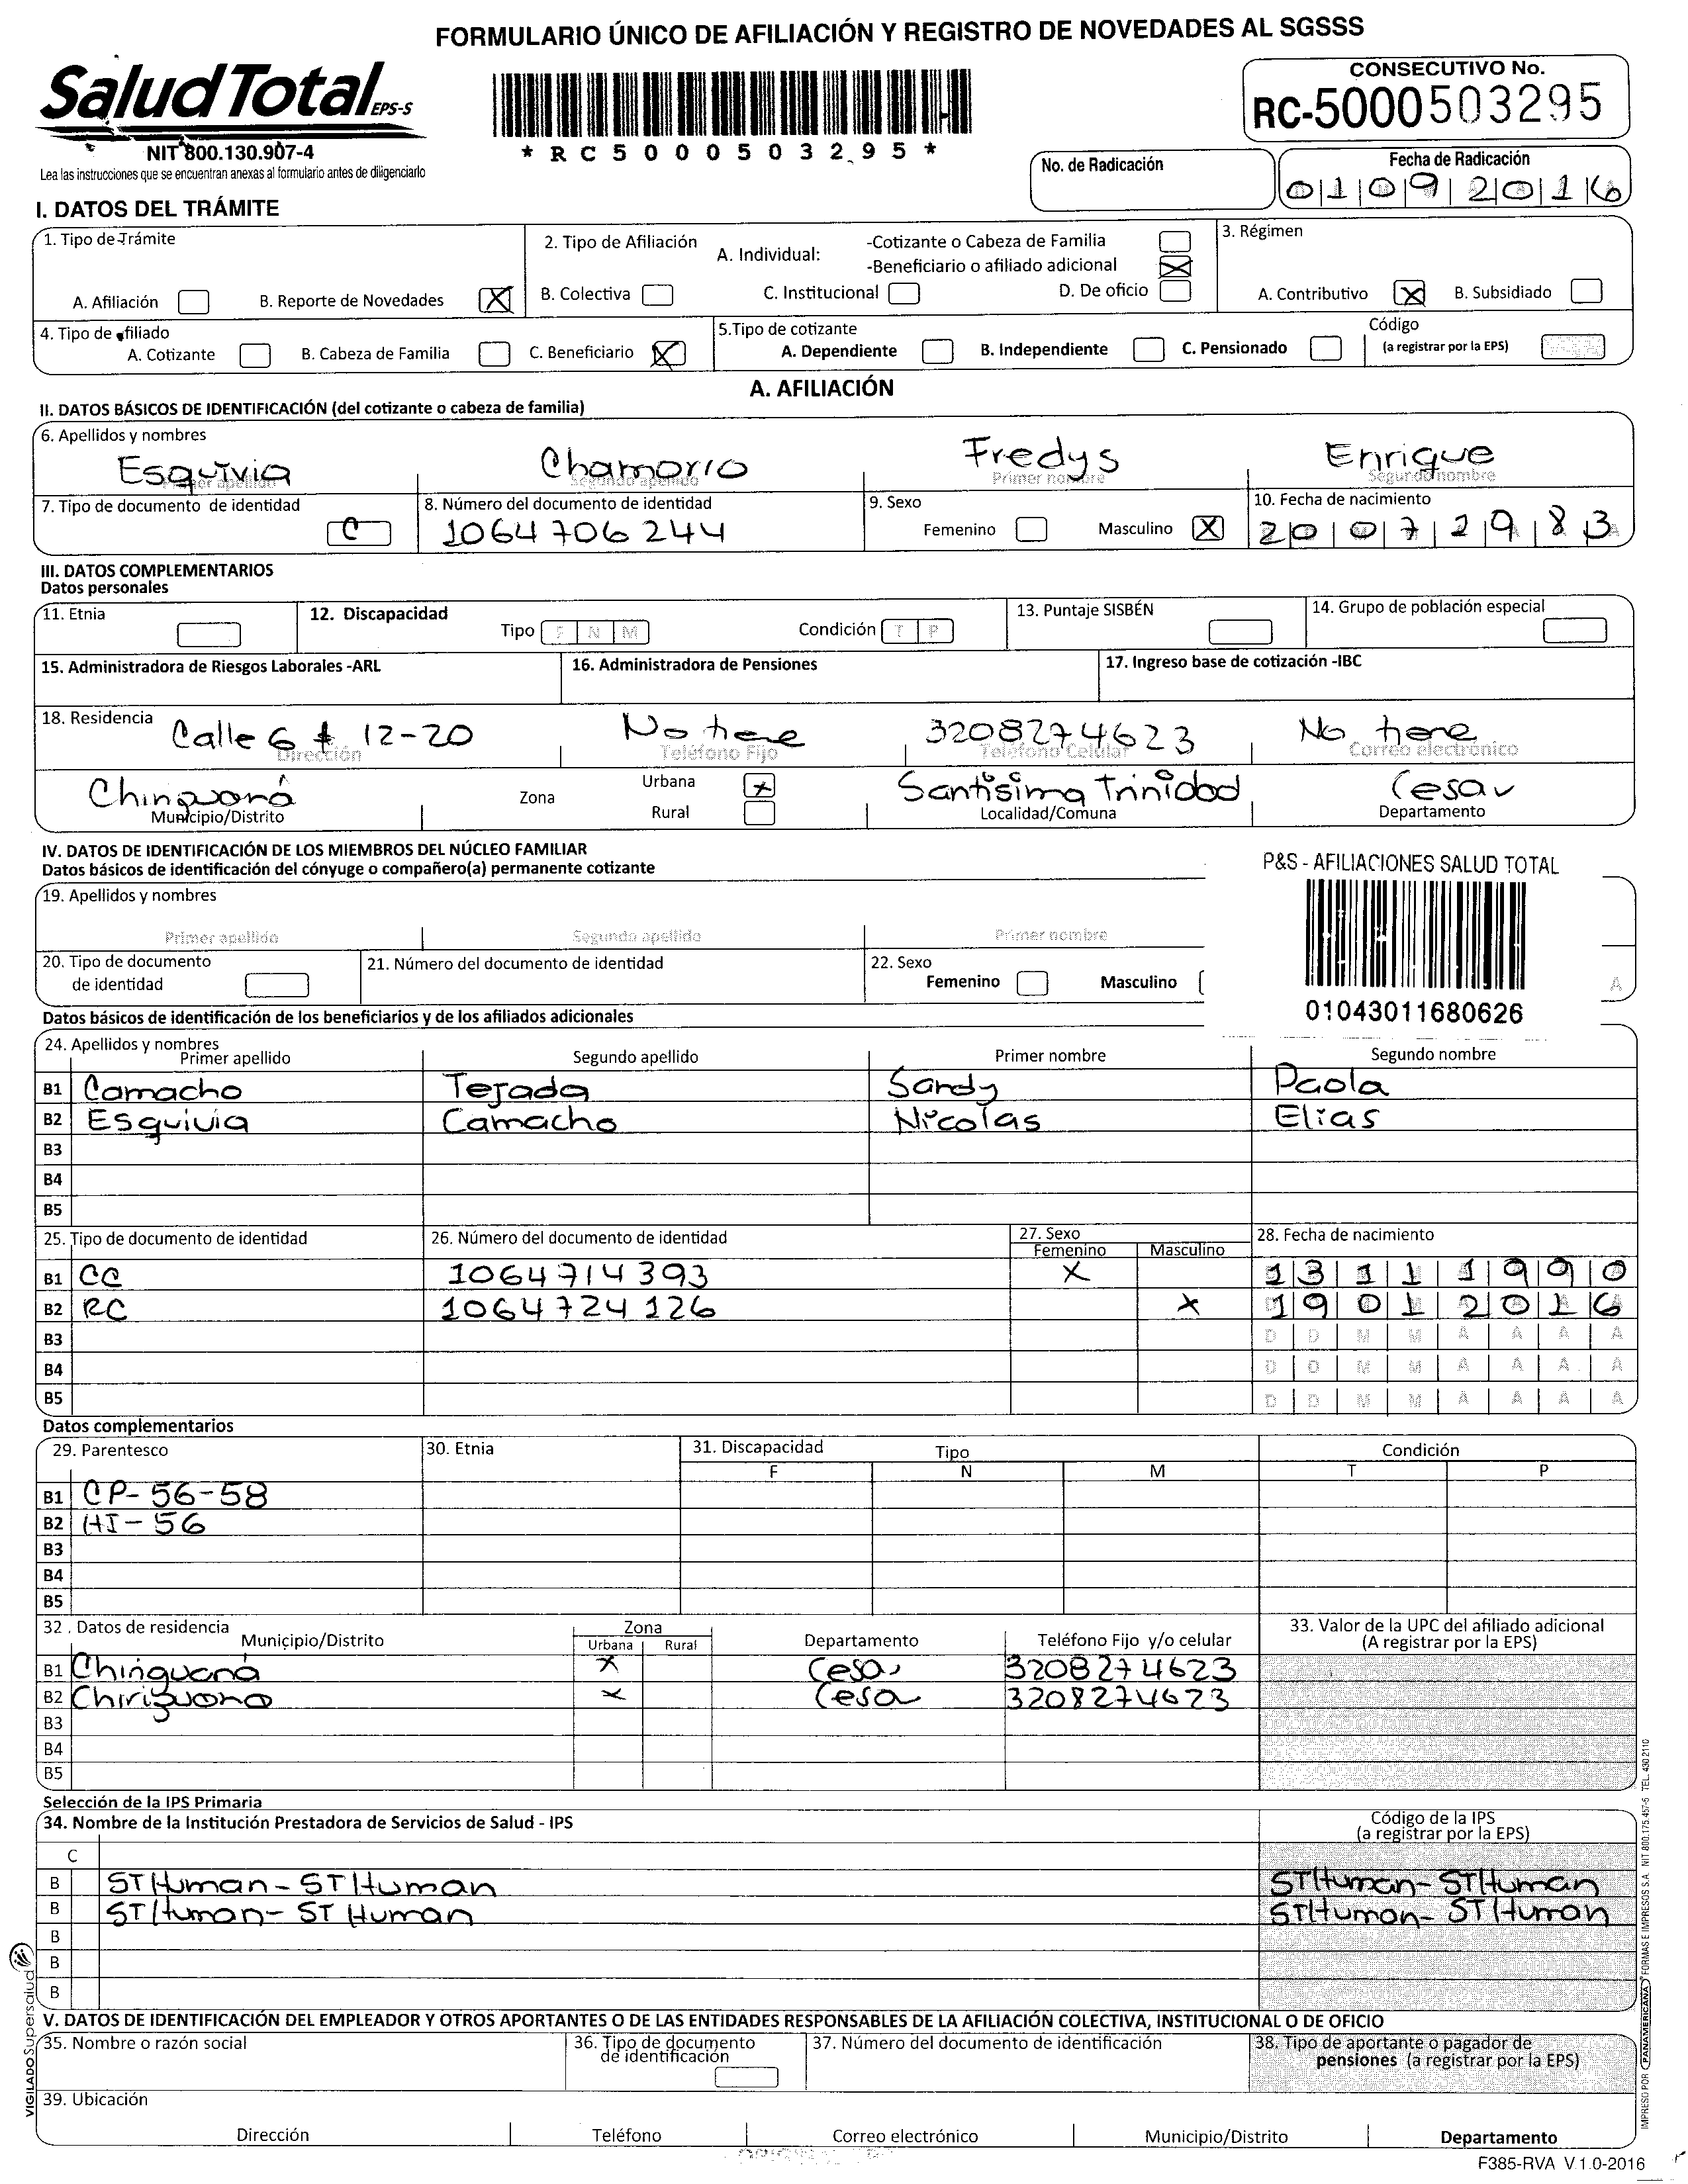 FORMULARIO ÚNICO DE AFILIACIÓN Y REGISTRO DE NOVEDADES AL SGSSS
SaludTotal EPS-S
NIT 800.130.907-4
Lea las instrucciones que se encuentran anexas al formulario antes de diligenciarlo
*RC5000503295*
CONSECUTIVO No.
RC-5000503295
No. de Radicación
Fecha de Radicación
01092016
I. DATOS DEL TRÁMITE
1. Tipo de Trámite
A. Afiliación B. Reporte de Novedades X
2. Tipo de Afiliación A. Individual: -Cotizante o Cabeza de Familia
-Beneficiario o afiliado adicional X
B. Colectiva C. Institucional D. De oficio
3. Régimen
A. Contributivo X B. Subsidiado
4. Tipo de afiliado
A. Cotizante B. Cabeza de Familia C. Beneficiario X
5.Tipo de cotizante
A. Dependiente B. Independiente C. Pensionado
Código
(a registrar por la EPS)
A. AFILIACIÓN
II. DATOS BÁSICOS DE IDENTIFICACIÓN (del cotizante o cabeza de familia)
6. Apellidos y nombres
Esquivia Chamorro Fredys Enrique
Primer apellido Segundo apellido Primer nombre Segundo nombre
7. Tipo de documento de identidad C
8. Número del documento de identidad
1064706244
9. Sexo
Femenino Masculino X
10. Fecha de nacimiento
20071983
III. DATOS COMPLEMENTARIOS
Datos personales
11. Etnia
12. Discapacidad Tipo F N M Condición T P
13. Puntaje SISBÉN
14. Grupo de población especial
15. Administradora de Riesgos Laborales -ARL
16. Administradora de Pensiones
17. Ingreso base de cotización -IBC
18. Residencia
Calle 6 # 12-20 No tiene 3208274623 No tiene
Dirección Teléfono Fijo Teléfono Celular Correo electrónico
Chiriguaná Zona Urbana X Rural Santisima Trinidad Cesar
Municipio/Distrito Localidad/Comuna Departamento
IV. DATOS DE IDENTIFICACIÓN DE LOS MIEMBROS DEL NÚCLEO FAMILIAR
Datos básicos de identificación del cónyuge o compañero(a) permanente cotizante
P&S - AFILIACIONES SALUD TOTAL
01043011680626
19. Apellidos y nombres
Primer apellido Segundo apellido Primer nombre
20. Tipo de documento
de identidad
21. Número del documento de identidad
22. Sexo
Femenino Masculino
A
Datos básicos de identificación de los beneficiarios y de los afiliados adicionales
24. Apellidos y nombres
Primer apellido Segundo apellido Primer nombre Segundo nombre
B1 Camacho Tejada Sandy Paola
B2 Esquivia Camacho Nicolas Elias
B3
B4
B5
25. Tipo de documento de identidad 26. Número del documento de identidad 27. Sexo 28. Fecha de nacimiento
Femenino Masculino
B1 CC 1064714393 X 13111990
B2 RC 1064724126 X 19012016
B3 D D M M A A A A
B4 D D M M A A A A
B5 D D M M A A A A
Datos complementarios
29. Parentesco 30. Etnia 31. Discapacidad Tipo Condición
F N M T P
B1 CP-56-58
B2 HI-56
B3
B4
B5
32. Datos de residencia
Municipio/Distrito Zona Departamento Teléfono Fijo y/o celular
Urbana Rural
33. Valor de la UPC del afiliado adicional
(A registrar por la EPS)
B1 Chiriguaná X Cesar 3208274623
B2 Chiriguana X Cesar 3208274623
B3
B4
B5
Selección de la IPS Primaria
34. Nombre de la Institución Prestadora de Servicios de Salud - IPS
Código de la IPS
(a registrar por la EPS)
C
B STHuman-STHuman STHuman-STHuman
B STHuman-ST Human STHuman-STHuman
B
B
B
V. DATOS DE IDENTIFICACIÓN DEL EMPLEADOR Y OTROS APORTANTES O DE LAS ENTIDADES RESPONSABLES DE LA AFILIACIÓN COLECTIVA, INSTITUCIONAL O DE OFICIO
35. Nombre o razón social
36. Tipo de documento
de identificación
37. Número del documento de identificación
38. Tipo de aportante o pagador de
pensiones (a registrar por la EPS)
39. Ubicación
Dirección Teléfono Correo electrónico Municipio/Distrito Departamento
F385-RVA V.1.0-2016
VIGILADO Supersalud
IMPRESO POR PANAMERICANA FORMAS E IMPRESOS S.A. NIT 800.175.457-5 TEL. 430 2110